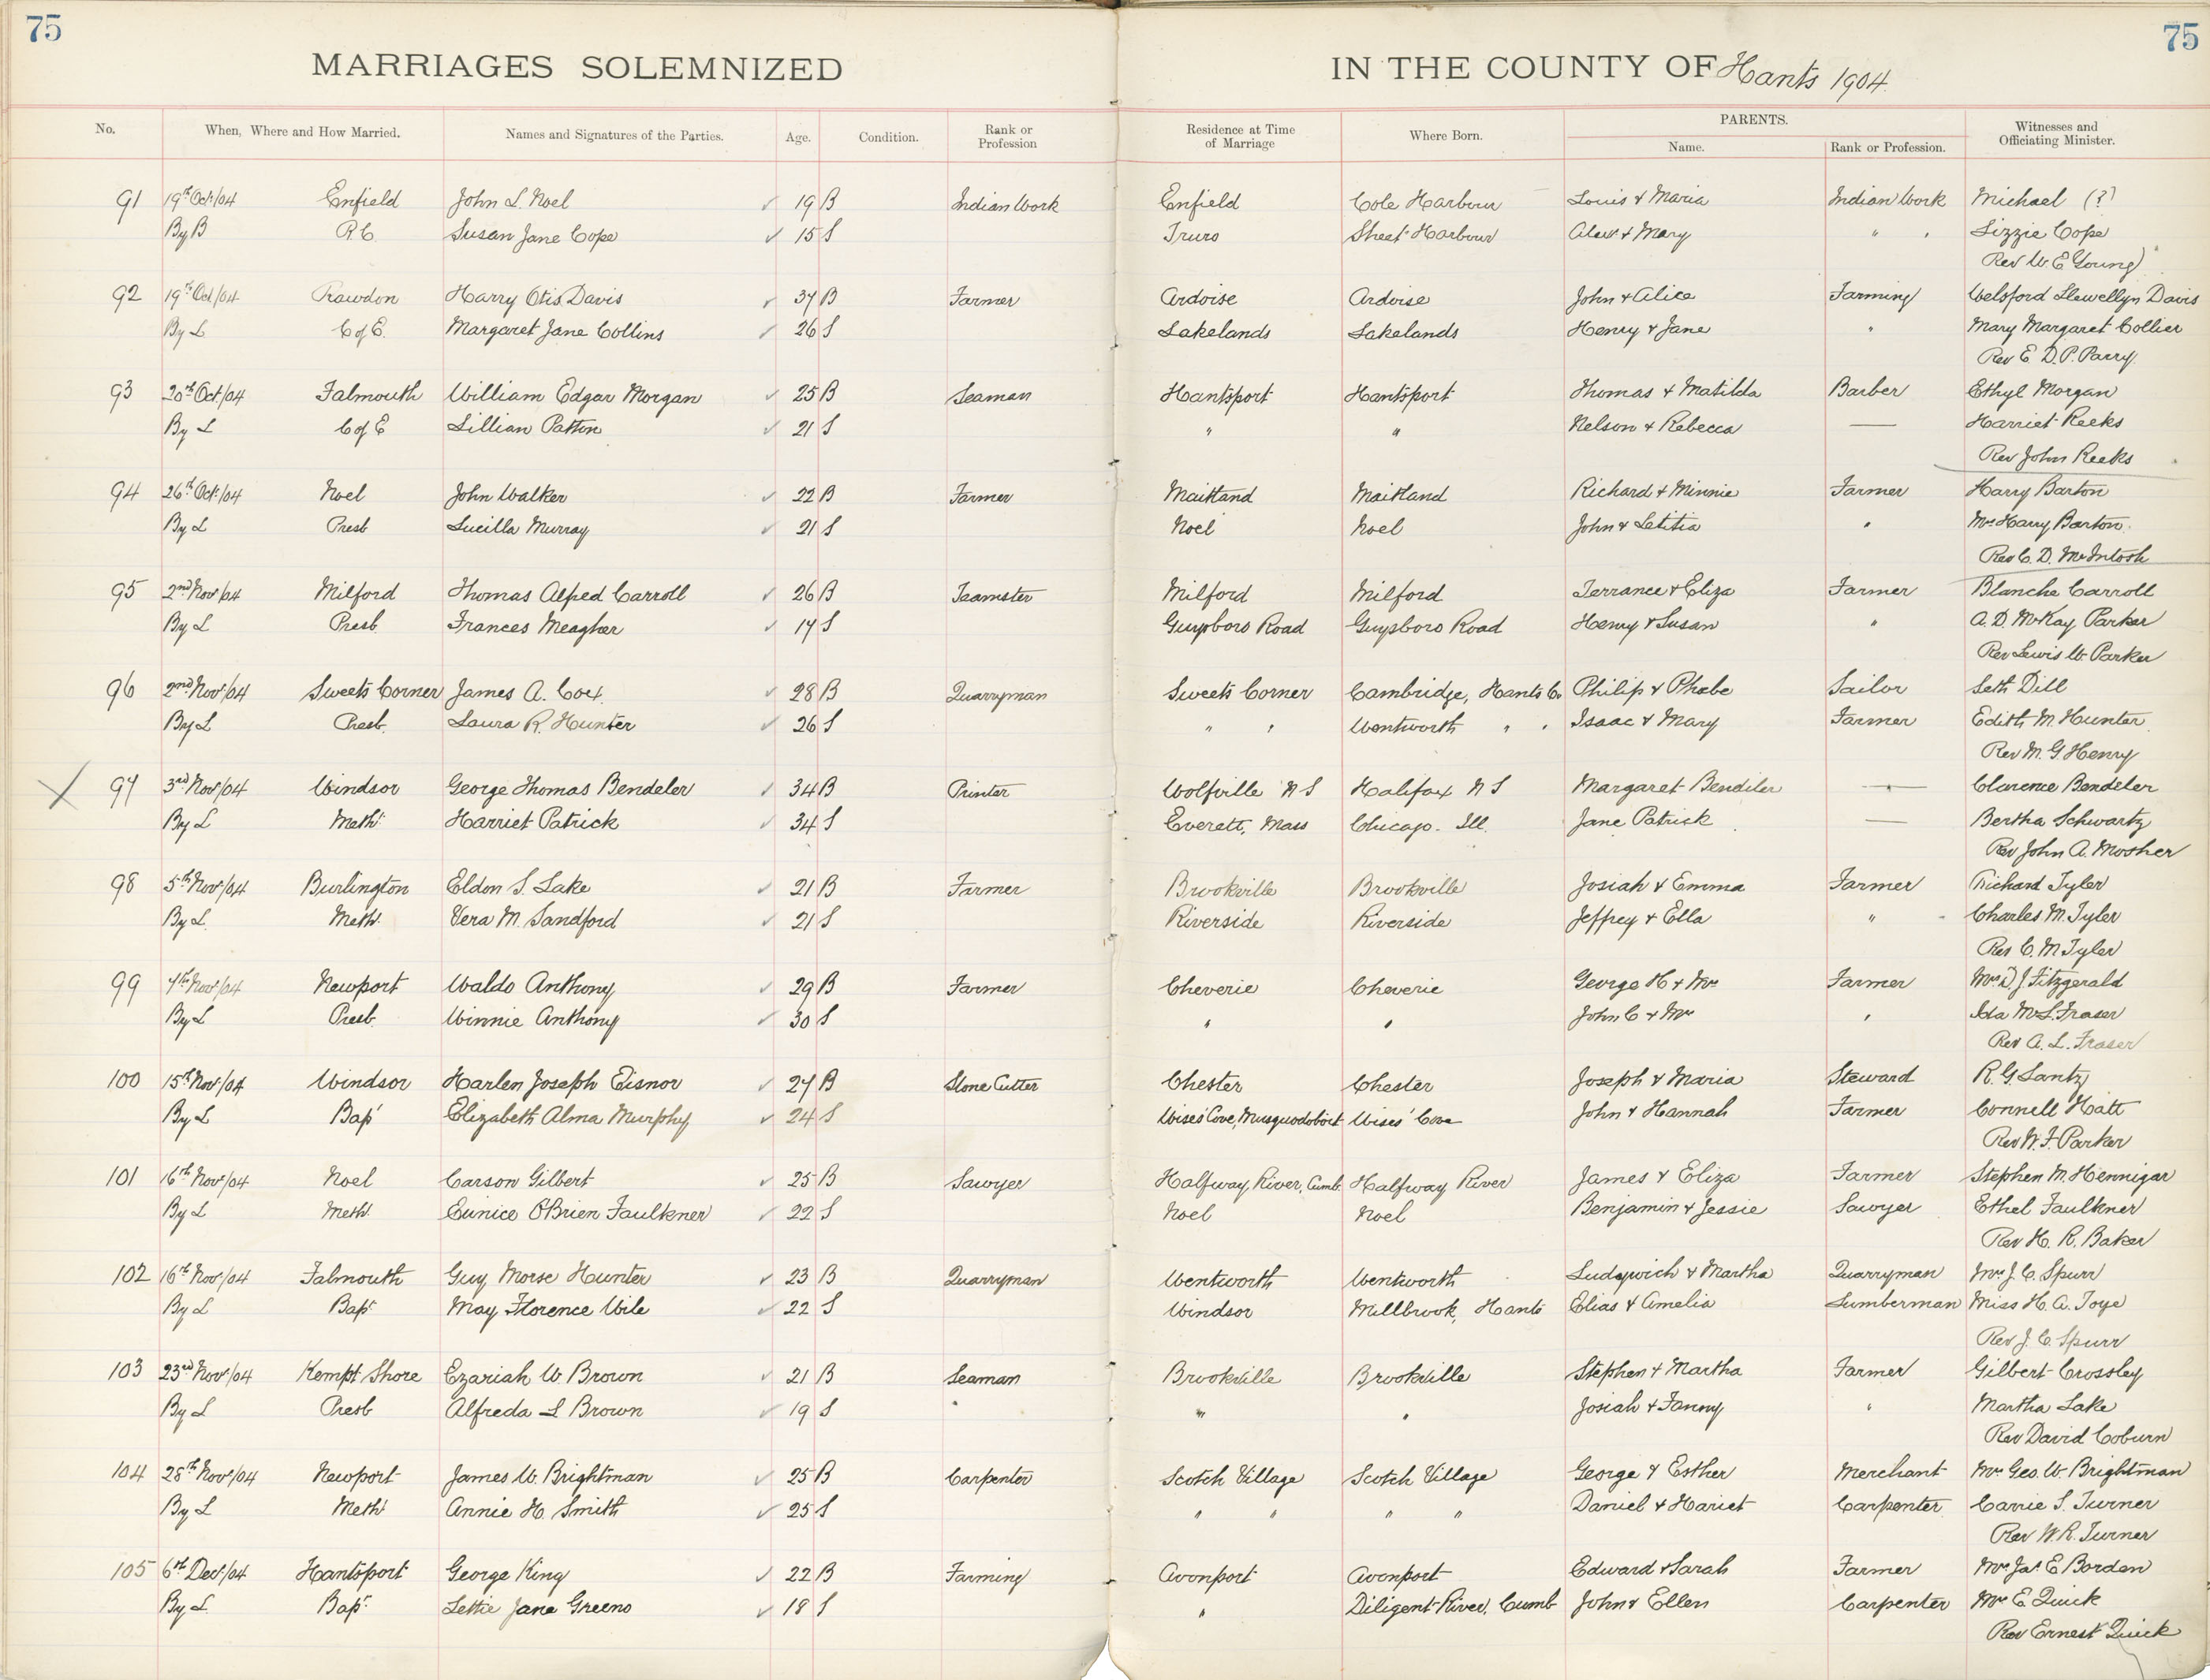 75 75
MARRIAGES SOLEMNIZED IN THE COUNTY OF Hants 1904
No. When, Where and How Married. Names and Signatures of the Parties. Age. Condition. Rank or Profession Residence at Time of Marriage Where Born. PARENTS. Name. Rank or Profession. Witnesses and Officiating Minister.
91 19th Oct/04 Enfield John L. Noel 19 B Indian Work Enfield Cole Harbour Louis & Maria Indian Work Michael (?)
By B R.C. Susan Jane Cope 15 S Truro Sheet Harbour Alex & Mary " " Lizzie Cope
Rev W. E Young
92 19th Oct/04 Rawdon Harry Otis Davis 37 B Farmer Ardoise Ardoise John & Alice Farming Welsford Llewellyn Davis
By L C of E. Margaret Jane Collins 26 S Lakelands Lakelands Henry & Jane " Mary Margaret Collier
Rev E D. P. Parry
93 20th Oct/04 Falmouth William Edgar Morgan 25 B Seaman Hantsport Hantsport Thomas & Matilda Barber Ethyl Morgan
By L C of E Lillian Patton 21 S " " Nelson & Rebecca — Harriet Reeks
Rev John Reeks
94 26th Oct/04 Noel John Walker 22 B Farmer Maitland Maitland Richard & Minnie Farmer Harry Barton
By L Presb Lucilla Murray 21 S Noel Noel John & Letitia " Mrs Harry Barton
Rev C. D. McIntosh
95 2nd Nov/04 Milford Thomas Alfred Carroll 26 B Teamster Milford Milford Terrance & Eliza Farmer Blanche Carroll
By L Presb. Frances Meagher 17 S Guysboro Road Guysboro Road Henry & Susan " A. D. McKay Parker
Rev Lewis W. Parker
96 2nd Nov/04 Sweets Corner James A. Cox. 28 B Quarryman Sweets Corner Cambridge, Hants Co Philip & Phebe Sailor Seth Dill
By L Presb. Laura R. Hunter 26 S " " Wentworth " " Isaac & Mary Farmer Edith M. Hunter
Rev M. G. Henry
97 3rd Nov/04 Windsor George Thomas Bendeler 34 B Printer Wolfville N S Halifax N S Margaret Bendiler — Clarence Bendeler
By L Meth. Harriet Patrick 34 S Everett, Mass Chicago. Ill. Jane Patrick — Bertha Schwartz
Rev John A. Mosher
98 5th Nov/04 Burlington Eldon S. Lake 21 B Farmer Brookville Brookville Josiah & Emma Farmer Richard Tyler
By L. Meth. Vera M. Sandford 21 S Riverside Riverside Jeffrey & Ella " Charles M. Tyler
Rev C. M. Tyler
99 7th Nov/04 Newport Waldo Anthony 29 B Farmer Cheverie Cheverie George H & Mrs Farmer Mrs D. J. Fitzgerald
By L Presb. Winnie Anthony 30 S " " John C & Mrs " Ida McL. Fraser
Rev A. L. Fraser
100 15th Nov/04 Windsor Harlen Joseph Eisnor 27 B Stone Cutter Chester Chester Joseph & Maria Steward R. G. Lantz
By L Bapt Elizabeth Alma Murphy 24 S Wises' Cove, Musquodoboit Wises' Cove John & Hannah Farmer Connell Hatt
Rev W. F. Parker
101 16th Nov/04 Noel Carson Gilbert 25 B Sawyer Halfway River, Cumb. Halfway River James & Eliza Farmer Stephen M. Hennigar
By L Meth. Eunice O'Brien Faulkner 22 S Noel Noel Benjamin & Jessie Sawyer Ethel Faulkner
Rev H. R. Baker
102 16th Nov/04 Falmouth Guy Morse Hunter 23 B Quarryman Wentworth Wentworth Ludgwich & Martha Quarryman Mrs J. C. Spurr
By L Bapt May Florence Wile 22 S Windsor Millbrook, Hants Elias & Amelia Lumberman Miss H. A. Toye
Rev J. C. Spurr
103 23rd Nov/04 Kempt Shore Ezariah W Brown 21 B Seaman Brookville Brookville Stephen & Martha Farmer Gilbert Crossley
By L Presb Alfreda L Brown 19 S " " Josiah & Fanny " Martha Lake
Rev David Coburn
104 28th Nov/04 Newport James W. Brightman 25 B Carpenter Scotch Village Scotch Village George & Esther Merchant Mrs Geo. W. Brightman
By L Meth Annie H. Smith 25 S " " " " Daniel & Hariet Carpenter Carrie S. Turner
Rev W. R. Turner
105 6th Dec/04 Hantsport George King 22 B Farming Avonport Avonport Edward & Sarah Farmer Mrs Jas. E Borden
By L Bapt. Lettie Jane Greeno 18 S " Diligent River, Cumb John & Ellen Carpenter Mrs E. Quick
Rev Ernest Quick